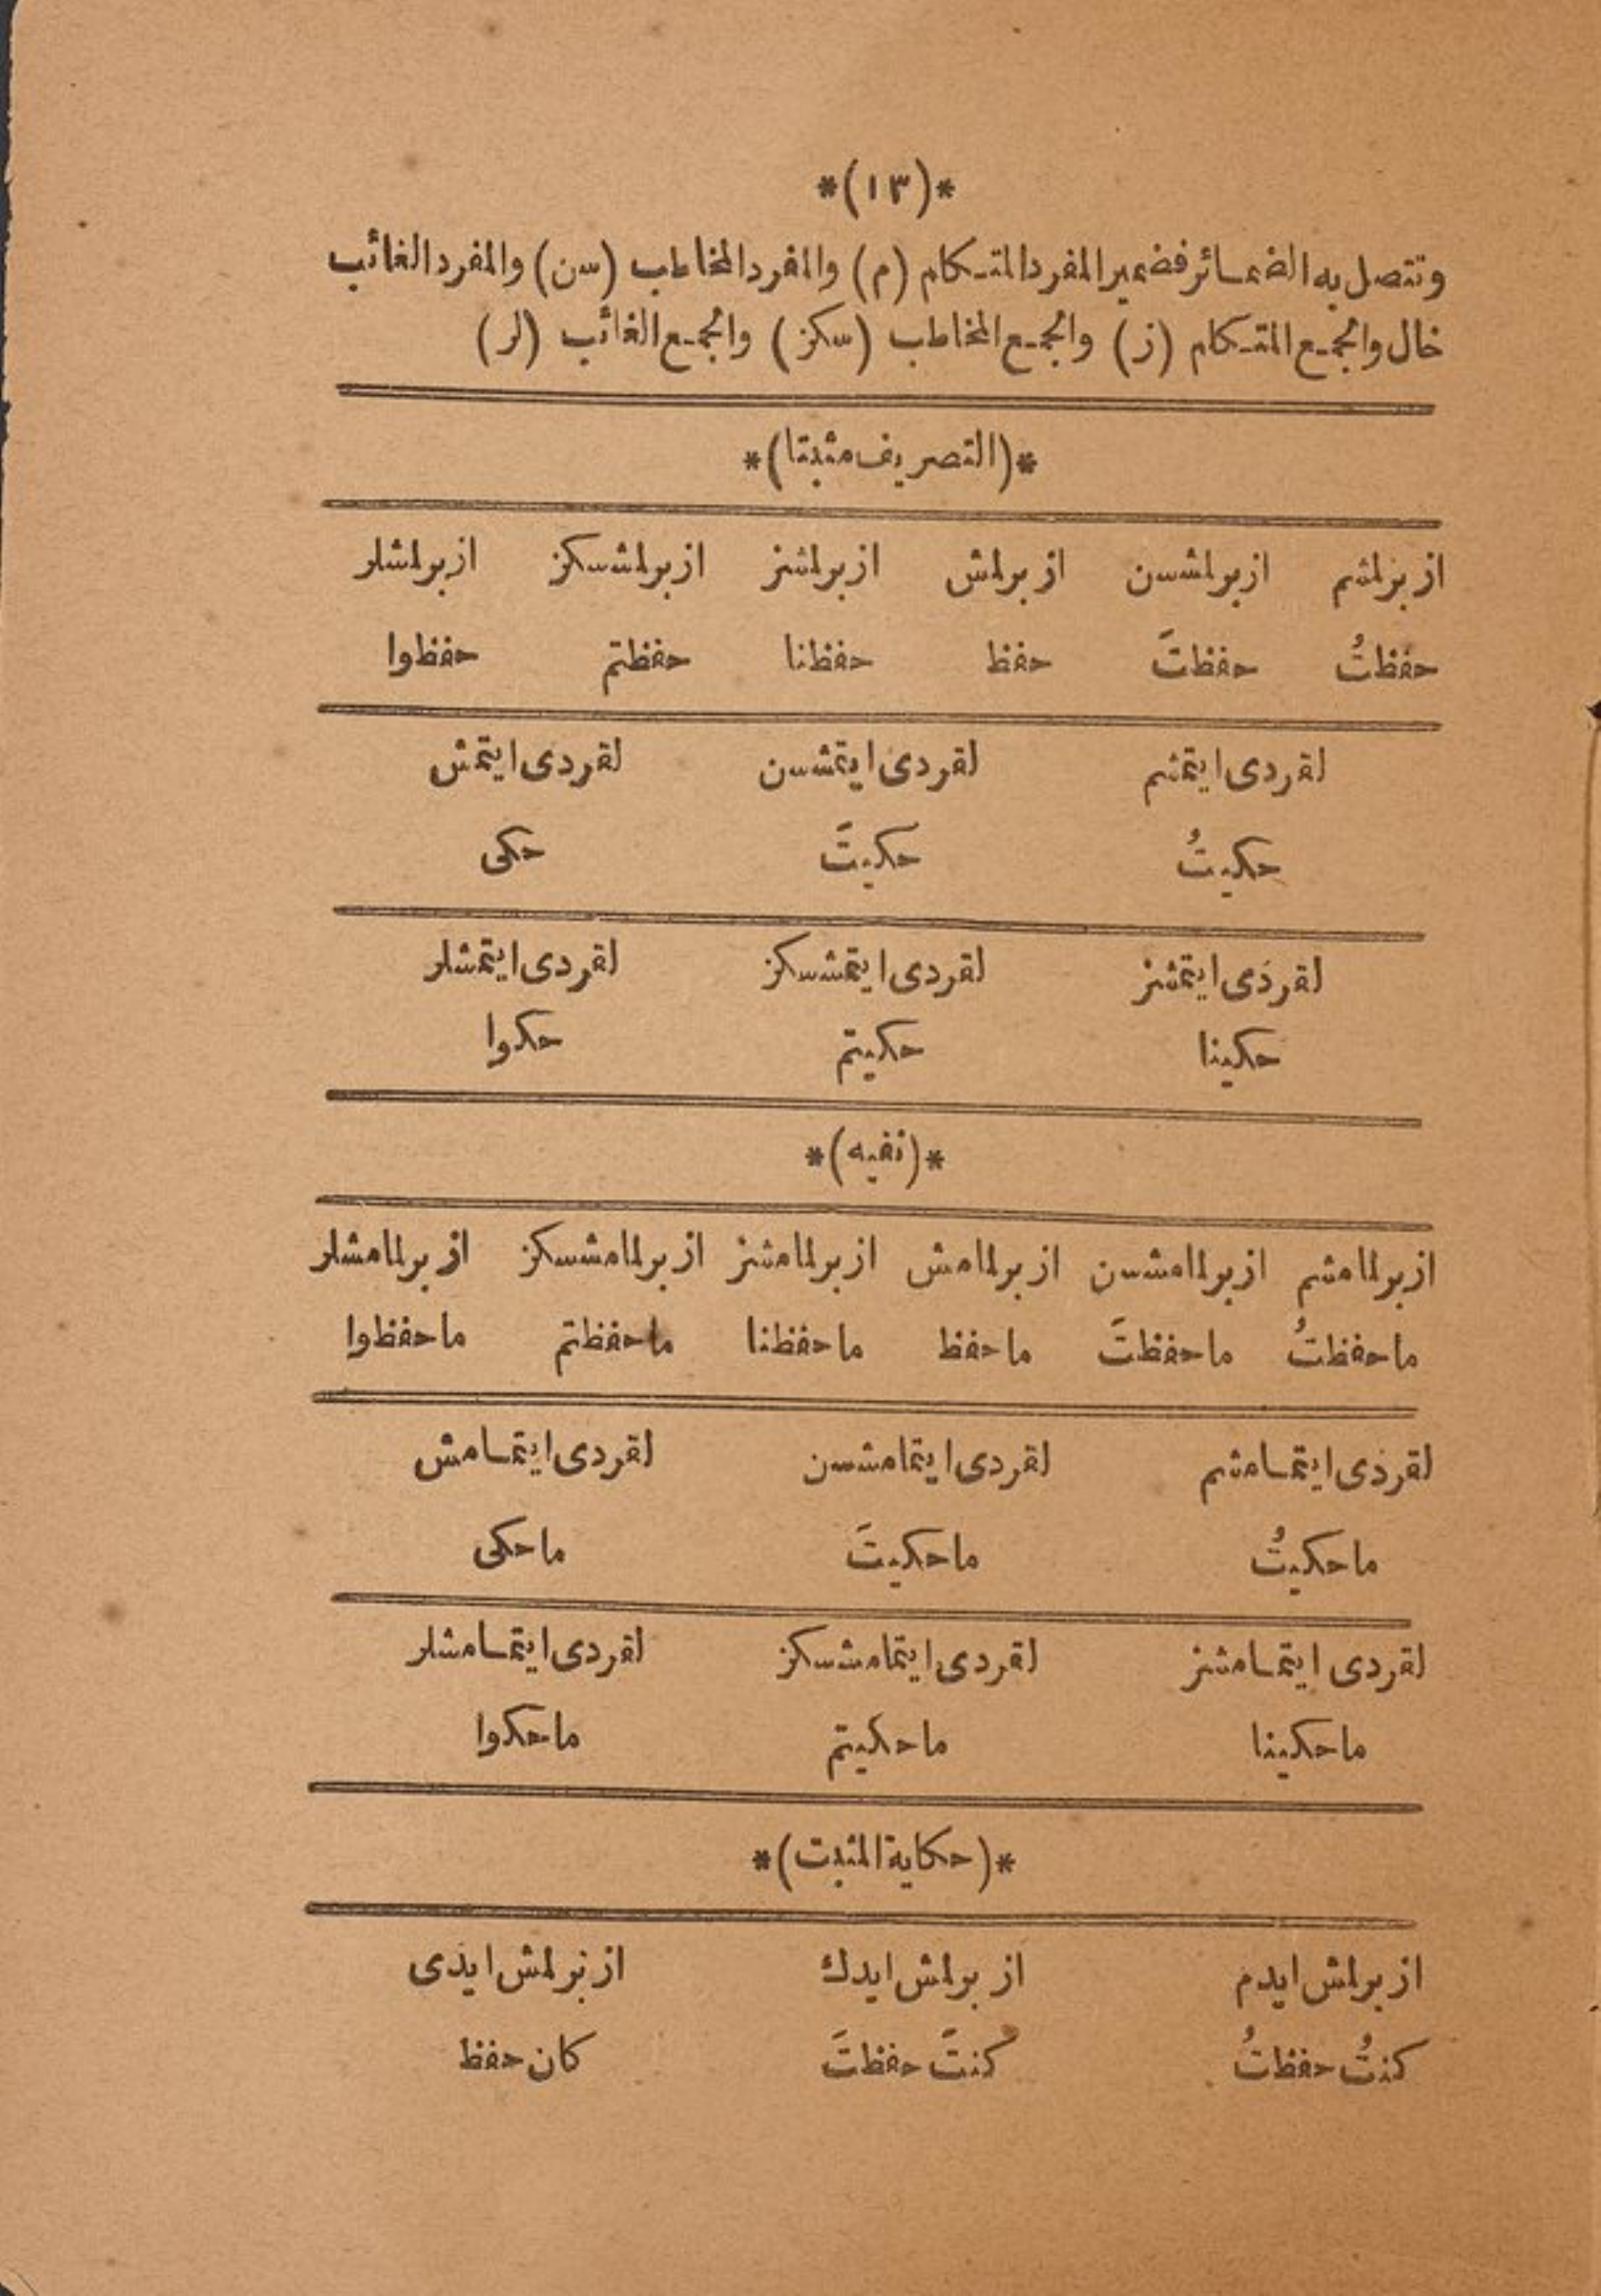 *(١٣)*
وتتصل به الضمائر فضمير المفرد المتكلم (م) والمفرد المخاطب (سن) والمفرد الغائب
خال والجمع المتكلم (ز) والجمع المخاطب (سكز) والجمع الغائب (لر)
*(التصريف مثبتا)*
ازبرلمشم ازبرلمشسن ازبرلمش ازبرلمشز ازبرلمشسكز ازبرلمشلر
حفظتُ حفظتَ حفظ حفظنا حفظتم حفظوا
لقردى ايتمشم لقردى ايتمشسن لقردى ايتمش
حكيتُ حكيتَ حكى
لقردى ايتمشز لقردى ايتمشسكز لقردى ايتمشلر
حكينا حكيتم حكوا
*(نفيه)*
ازبرلمامشم ازبرلمامشسن ازبرلمامش ازبرلمامشز ازبرلمامشسكز ازبرلمامشلر
ماحفظتُ ماحفظتَ ماحفظ ماحفظنا ماحفظتم ماحفظوا
لقردى ايتمامشم لقردى ايتمامشسن لقردى ايتمامش
ماحكيتُ ماحكيتَ ماحكى
لقردى ايتمامشز لقردى ايتمامشسكز لقردى ايتمامشلر
ماحكينا ماحكيتم ماحكوا
*(حكاية المثبت)*
ازبرلمش ايدم ازبرلمش ايدك ازبرلمش ايدى
كنتُ حفظتُ كنتَ حفظتَ كان حفظ